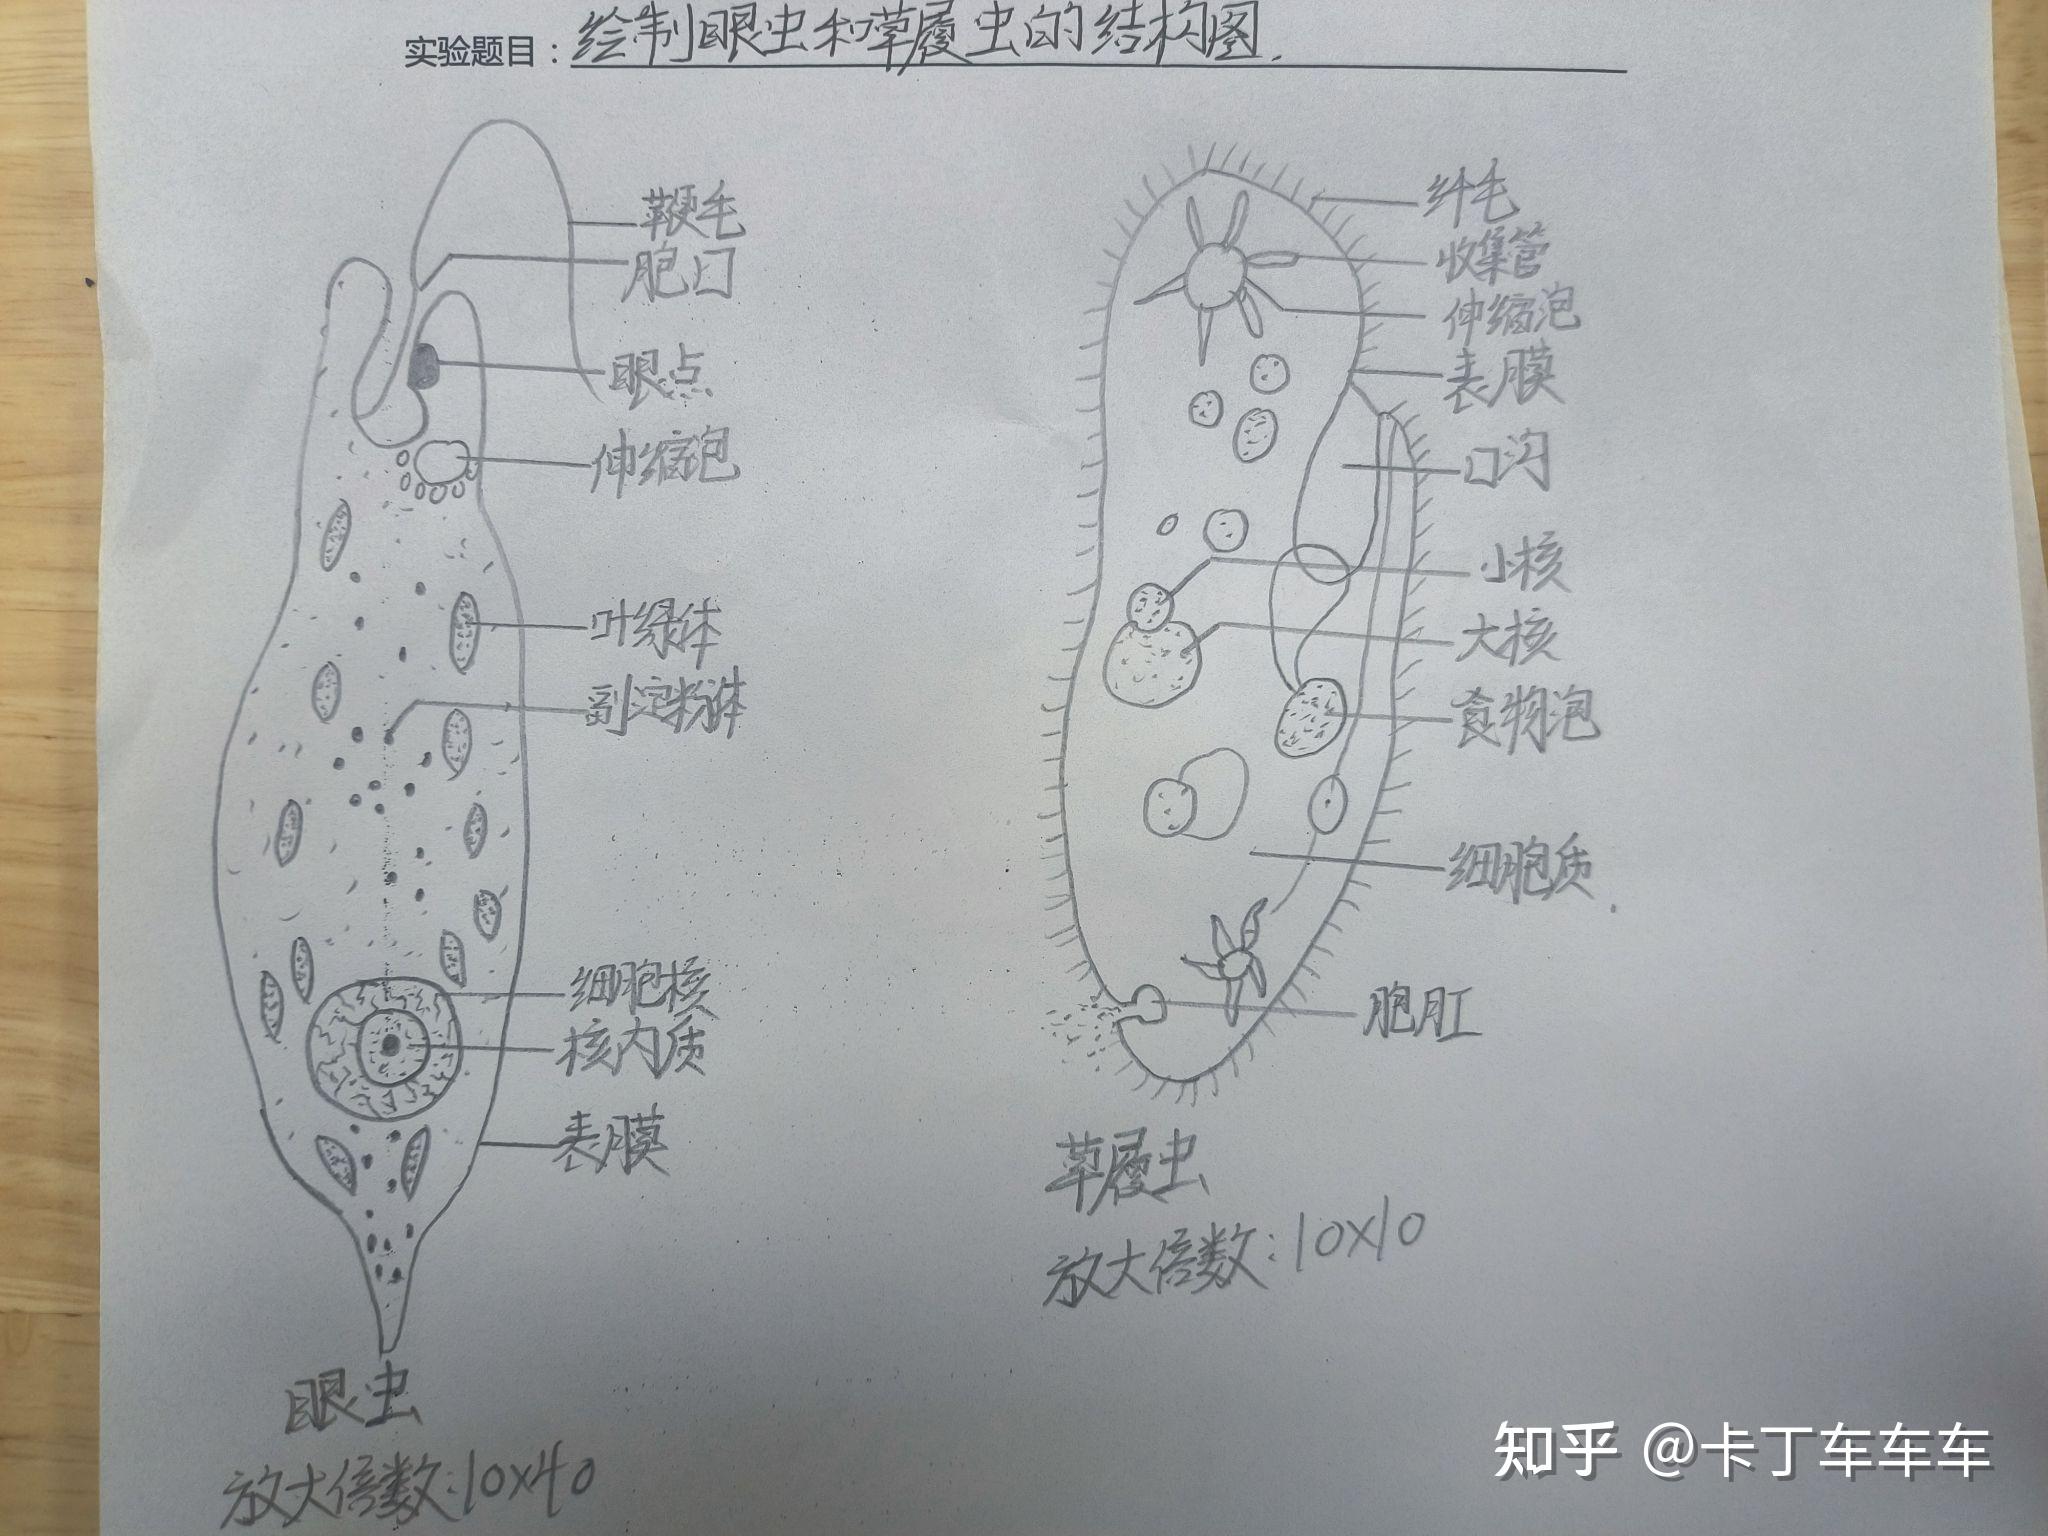 实验题目：绘制眼虫和草履虫的结构图.
鞭毛
胞口
眼点
伸缩泡
叶绿体
副淀粉体
细胞核
核内质
表膜
眼虫
放大倍数:10x40
纤毛
收集管
伸缩泡
表膜
口沟
小核
大核
食物泡
细胞质
胞肛
草履虫
放大倍数:10x10
知乎 @卡丁车车车